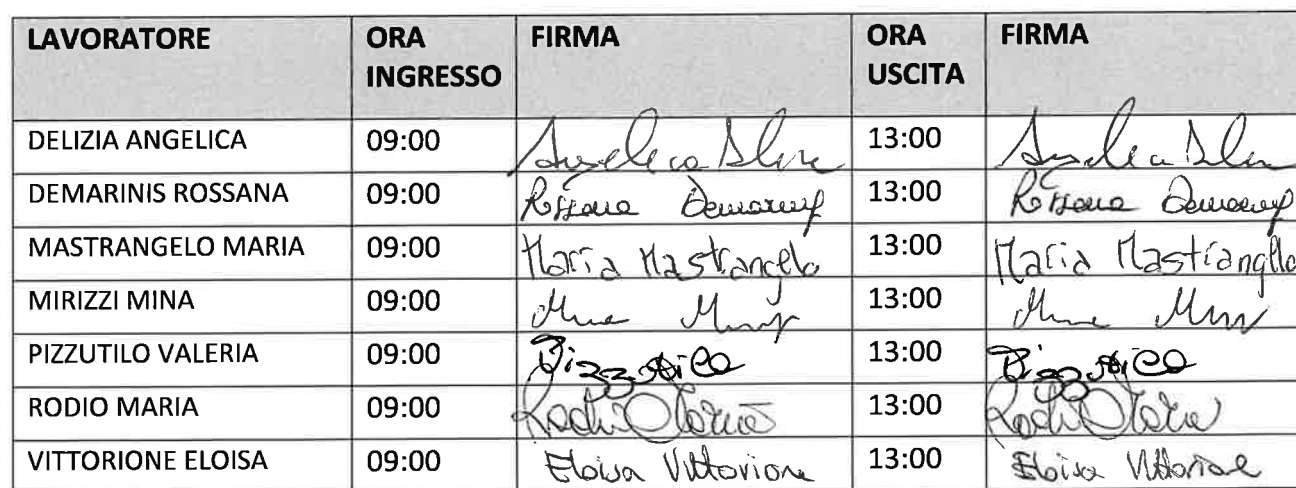 LAVORATORE ORA INGRESSO FIRMA ORA USCITA FIRMA
DELIZIA ANGELICA 09:00 Angelica 13:00 Angelica
DEMARINIS ROSSANA 09:00 Rossana 13:00 Rossana
MASTRANGELO MARIA 09:00 Maria Mastrangelo 13:00 Maria Mastrangelo
MIRIZZI MINA 09:00 13:00
PIZZUTILO VALERIA 09:00 Pizzutilo 13:00 Pizzutilo
RODIO MARIA 09:00 Rodio Maria 13:00 Rodio Maria
VITTORIONE ELOISA 09:00 Eloisa Vittorione 13:00 Eloisa Vittorione